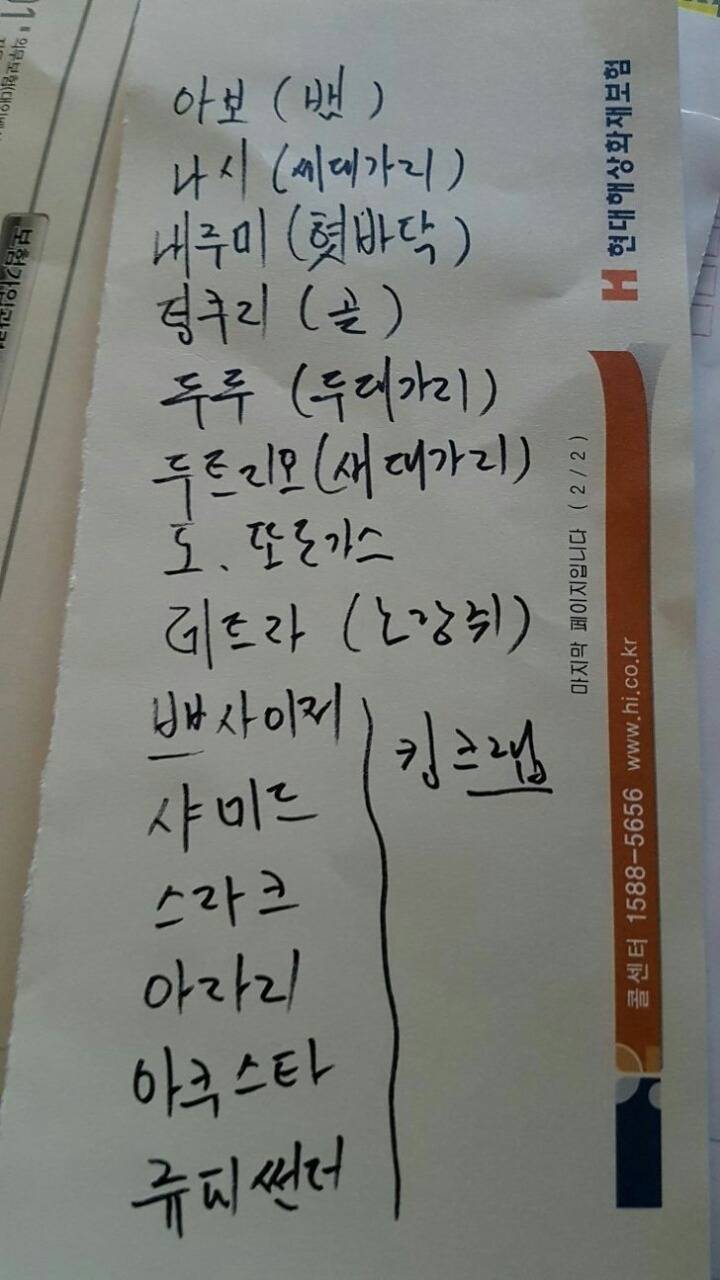 아보 (뱀)
나시 (세대가리)
내루미 (혓바닥)
텅구리 (골)
두두 (두대가리)
두트리오 (새대가리)
도. 또도가스
라 (노랑쥐)
사이저
킹크랩
샤미드
스라크
아라리
아쿠스타
쥬피썬더
H 현대해상화재보험
마지막 페이지입니다 ( 2 / 2 )
콜센터 1588-5656 www.hi.co.kr